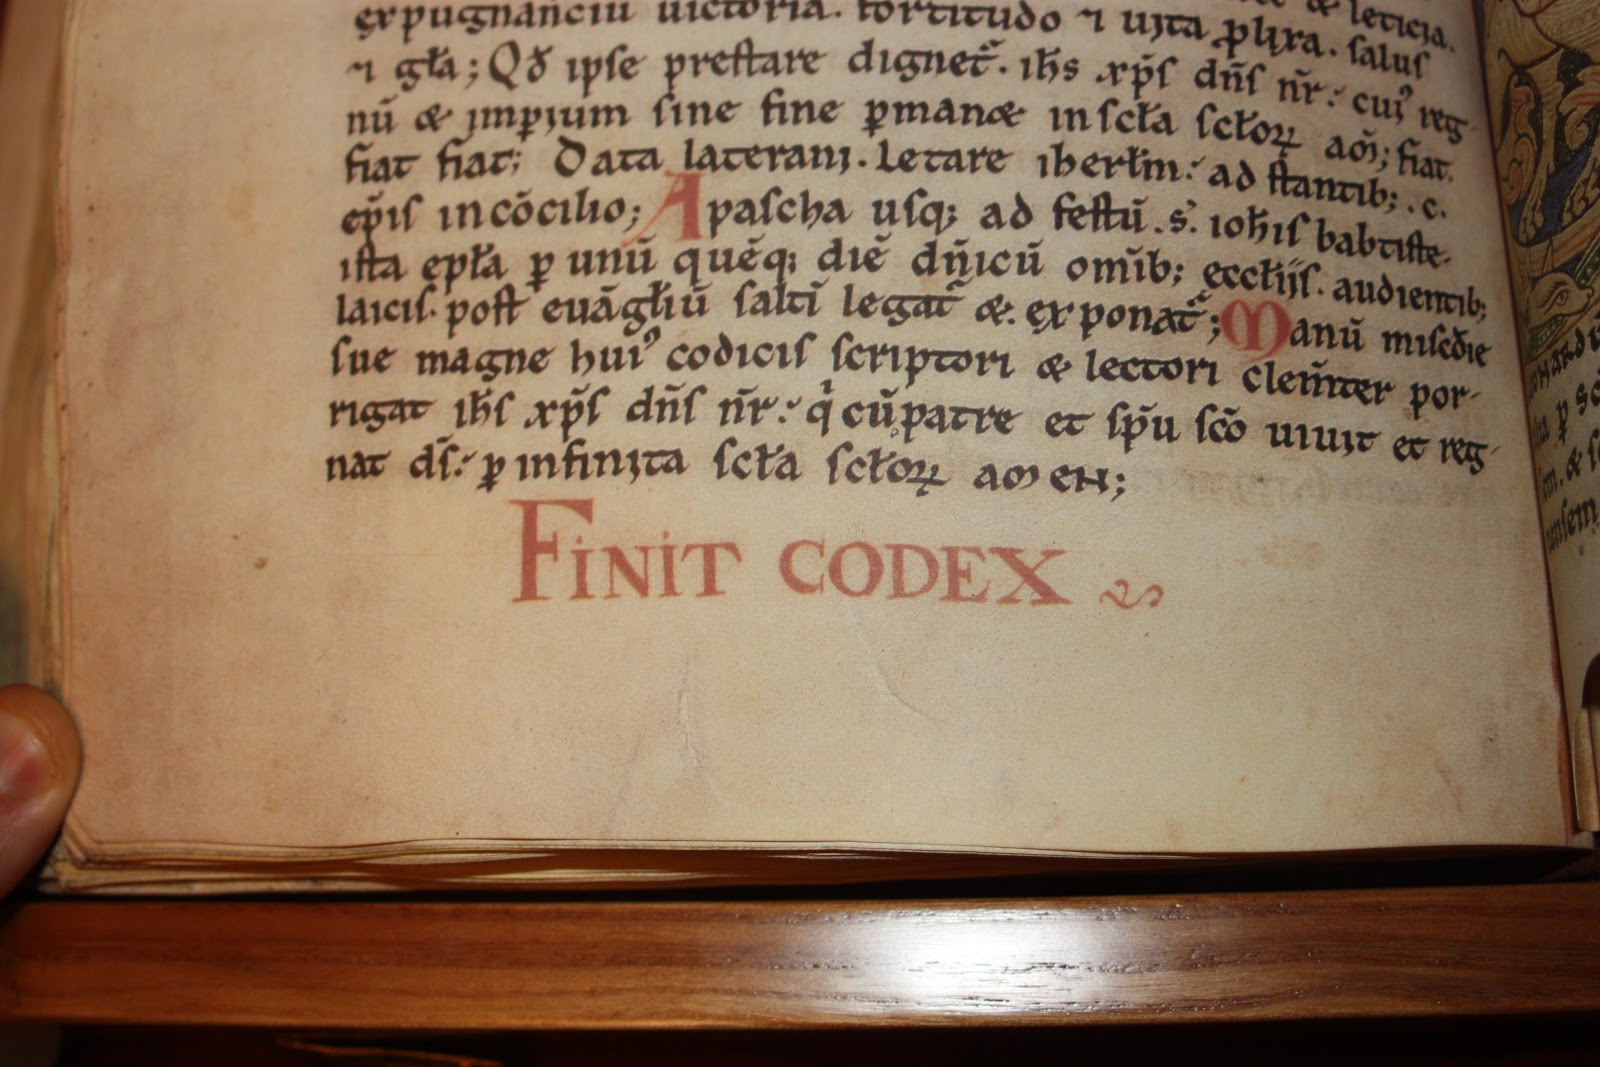 expugnanciū uictoria. fortitudo ⁊ uita ꝓlixa. & leticia.
⁊ gl̄a; Qđ ipse prestare dignet̄. ih̄s xp̄s dn̄s nr̄. cuiꝰ reg
nū & imꝑium sine fine ꝑman& in scl̄a scl̄oꝝ am̄; fiat.
fiat fiat; Data laterani. letare ihertm̄. ad stantib; .c.
ep̄is in cōcilio; A pascha usq; ad festū .s. ioh̄is babtiste.
ista epl̄a ꝑ unū quēq; diē dn̄icū omīb; eccl̄iis. audientib;
laicis. post euāgl̄iū saltī legat̄ &. exponat̄; Manū misc̄die
sue magne huiꝰ codicis scriptori & lectori clem̄ter por-
rigat ih̄s xp̄s dn̄s nr̄. qⁱ cū patre et sp̄u scō uiuit et reg-
nat ds̄. ꝑ infinita scl̄a scl̄oꝝ amen;
salus
FINIT CODEX